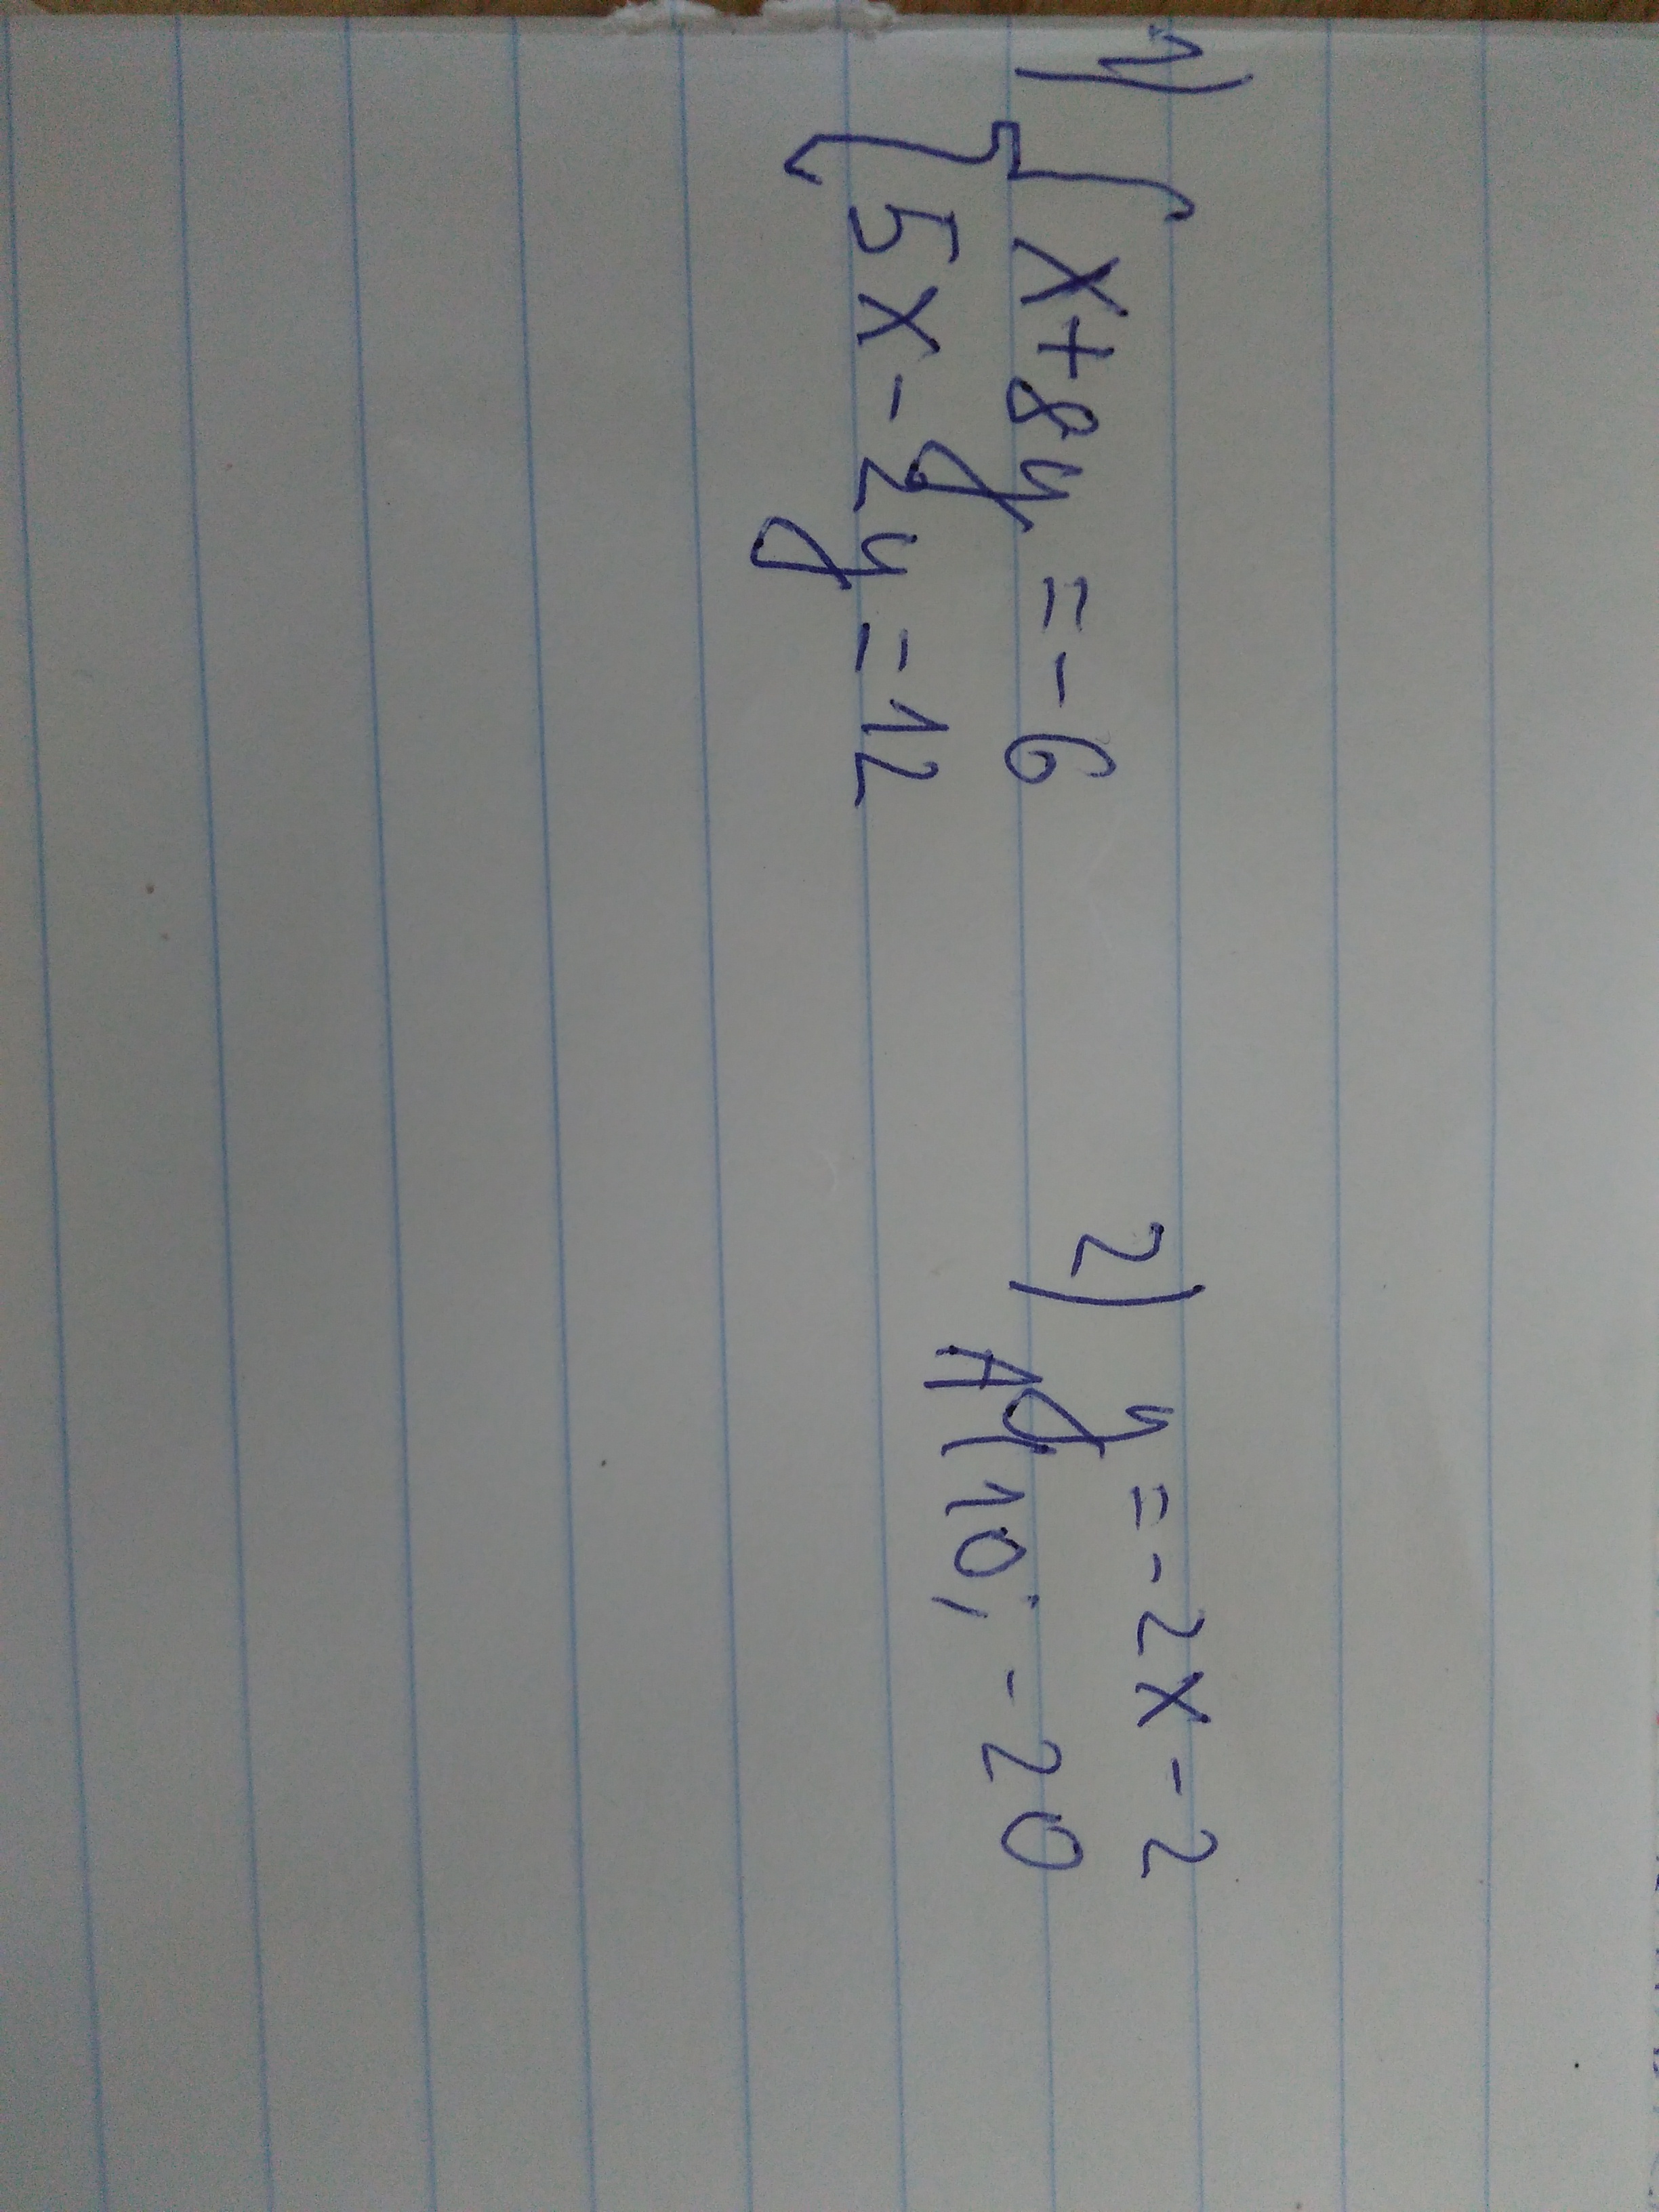 1) { x+8y=-6
5x-2y=12
2) y=-2x-2
A(10; -20